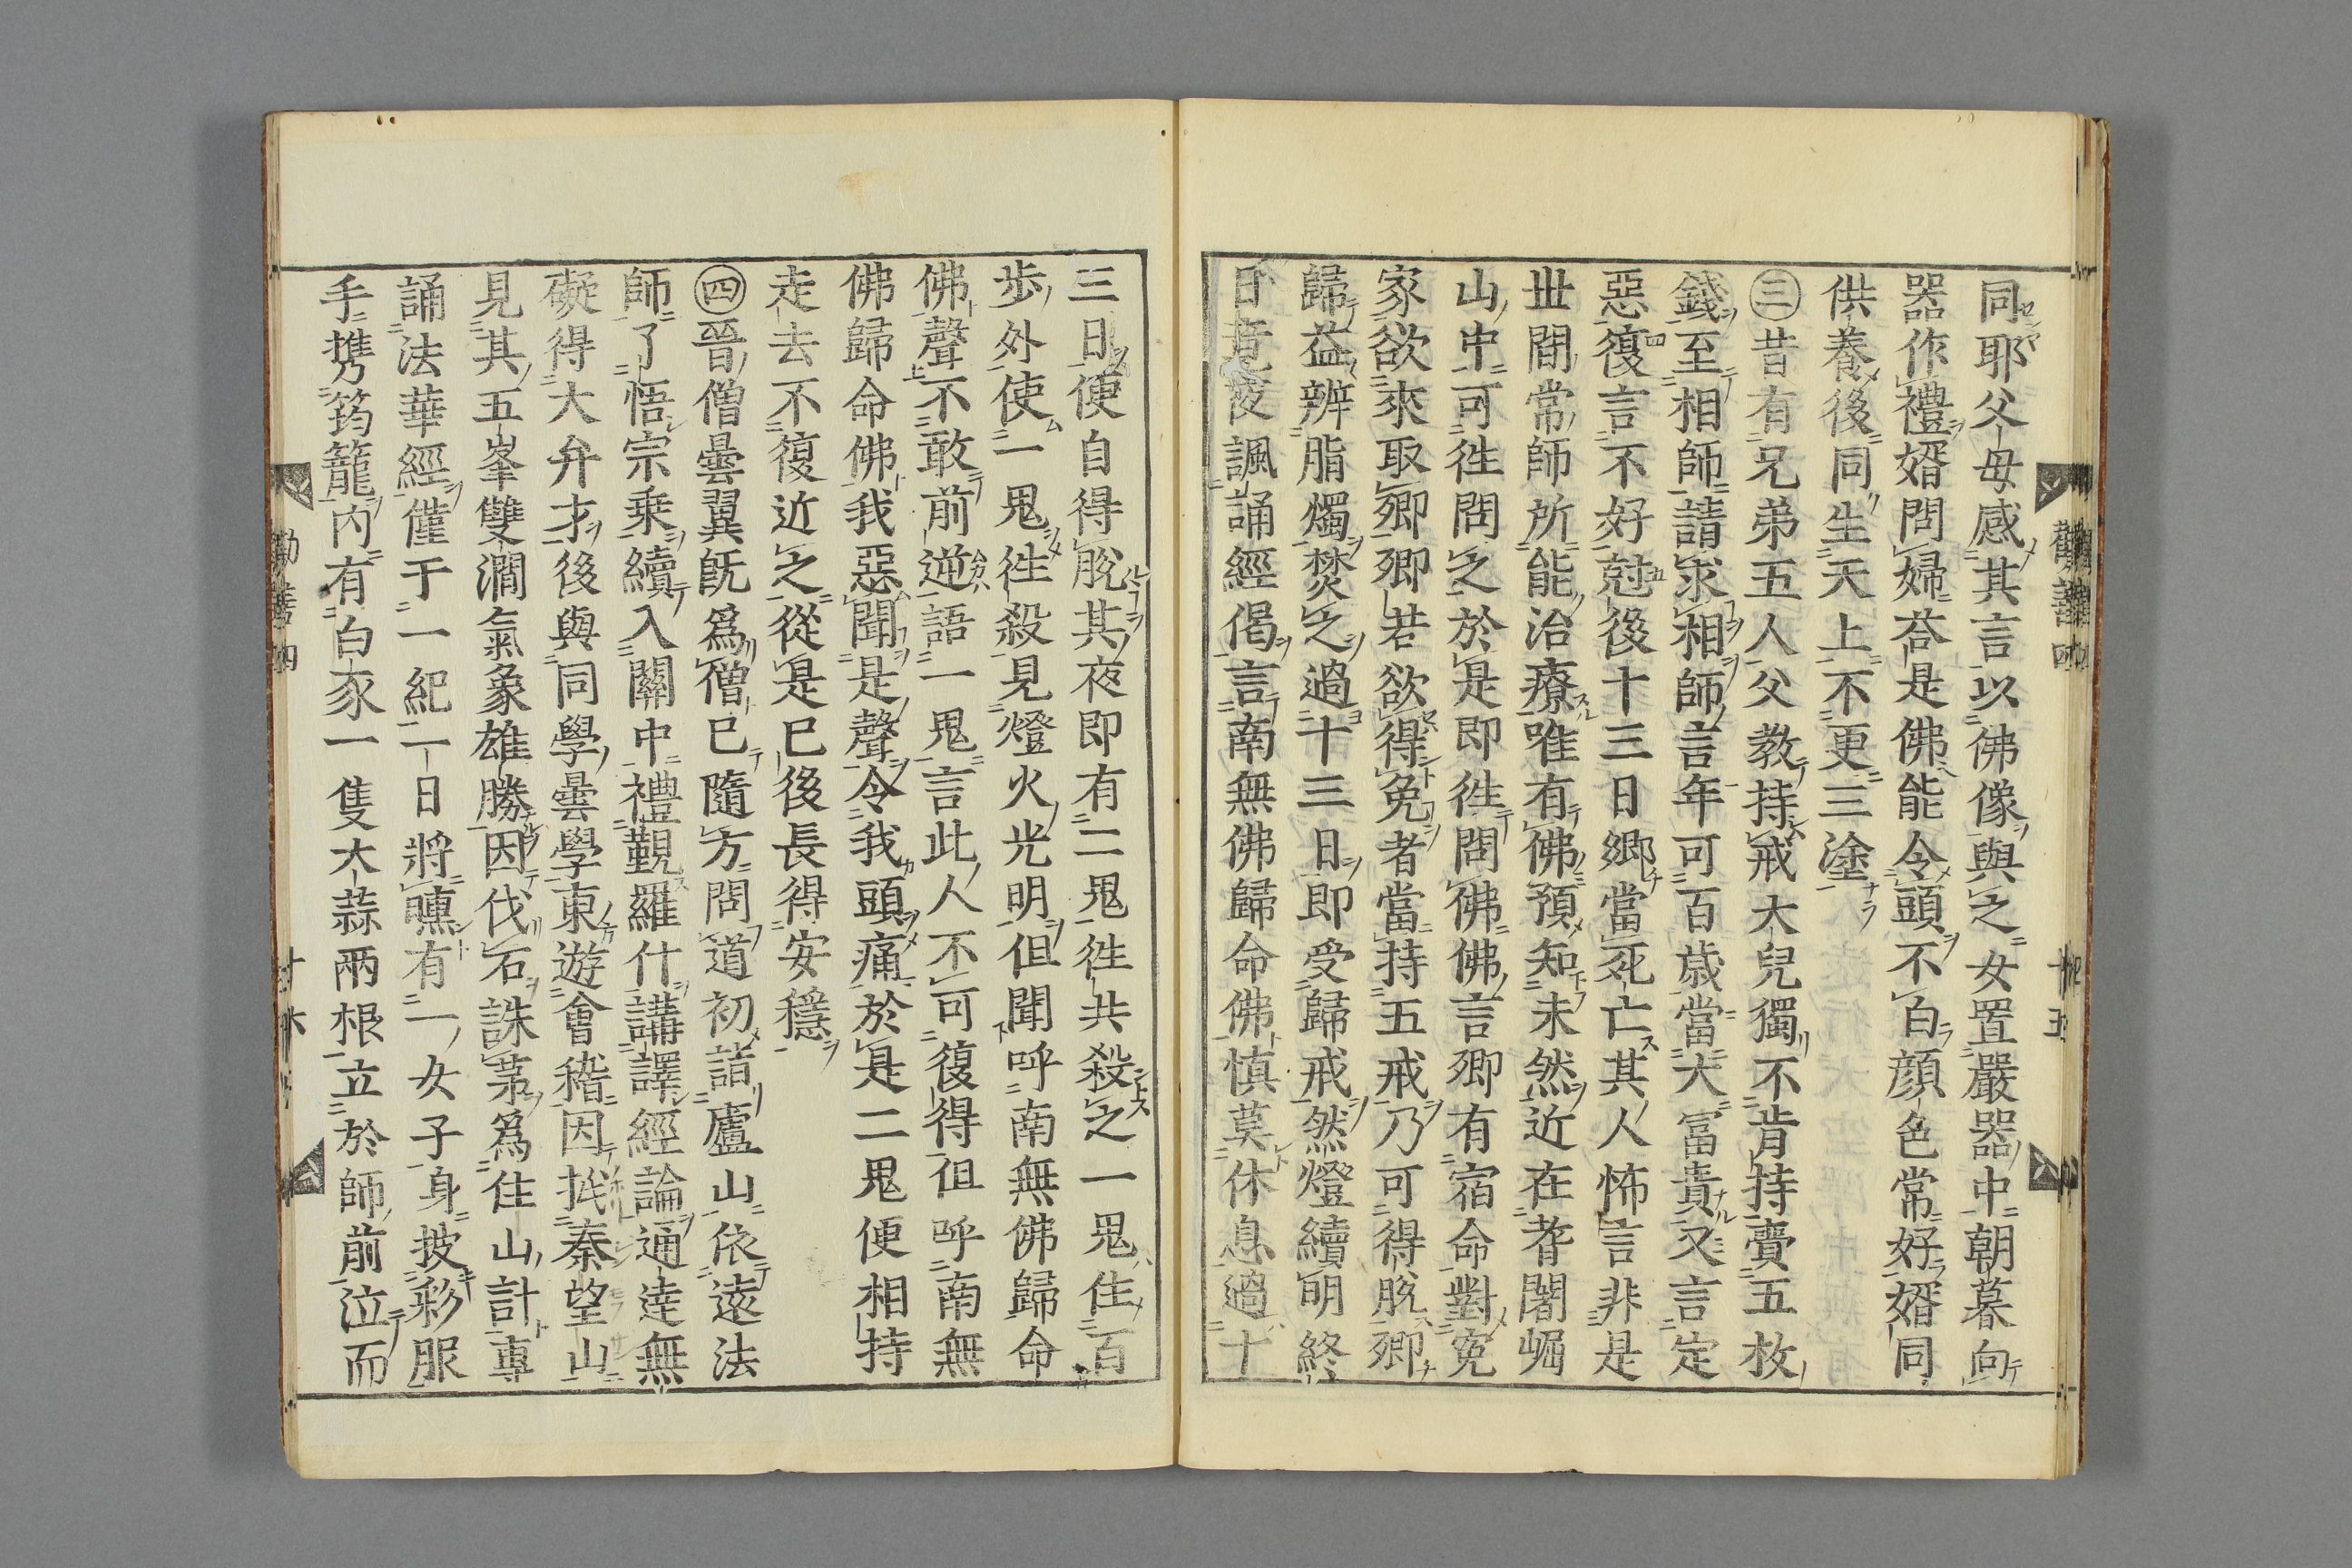 同耶父母感其言以佛像與之女置嚴器中朝暮向
器作禮婿問婦荅是佛能令頭不白顔色常好婿同
供養後同生天上不更三塗
㊂昔有兄弟五人父教持戒大兒獨不肯持賷五枚
錢至相師請求相師言年可百歳當大冨貴又言定
惡復言不好愆後十三日卿當死亡其人怖言非是
丗間常師所能治療唯有佛預知未然近在耆闍崛
山中可徃問之於是即徃問佛佛言卿有宿命對寃
家欲來取卿卿若欲得免者當持五戒乃可得脱卿
歸益辨脂燭焚之過十三日即受歸戒然燈續明終
日竟夜諷誦經偈言南無佛歸命佛慎莫休息過十
三日便自得脱其夜即有二鬼徃共殺之一鬼住百
歩外使一鬼徃殺見燈火光明但聞呼南無佛歸命
佛聲不敢前逆語一鬼言此人不可復得但呼南無
佛歸命佛我惡聞是聲令我頭痛於是二鬼便相持
走去不復近之從是巳後長得安穩
㊃晉僧曇翼旣爲僧巳隨方問道初詣廬山依遠法
師了悟宗乗續入關中禮覲羅什講譯經論通達無
礙得大弁才後與同學曇學東遊會稽因抵秦望山
見其五峯雙澗氣象雄勝因伐石誅茅爲住山計專
誦法華經僅于一紀一日將曛有一女子身披彩服
手携筠籠内有白豕一隻大蒜兩根立於師前泣而
勸善四
十五
勸善四
十六